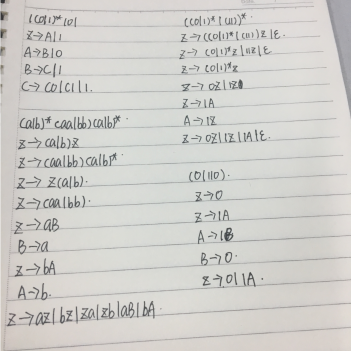 (0|1)*|0|
Z→A|1
A→B|0
B→C|1
C→C0|C1|1.
(a|b)*(aa|bb)(a|b)*
Z→(a|b)Z
Z→(aa|bb)(a|b)*
Z→Z(a|b).
Z→(aa|bb).
Z→aB
B→a
Z→bA
A→b.
Z→aZ|bZ|Za|Zb|aB|bA
((0|1)*|(11)*.
Z→((0|1)*|(11)Z|ε.
Z→(0|1)*Z|11Z|ε.
Z→(0|1)*Z
Z→0Z|1Z
Z→1A
A→1Z
Z→0Z|1Z|1A|ε.
(0|10).
Z→0
Z→1A
A→1B
B→0.
Z→0|1A.